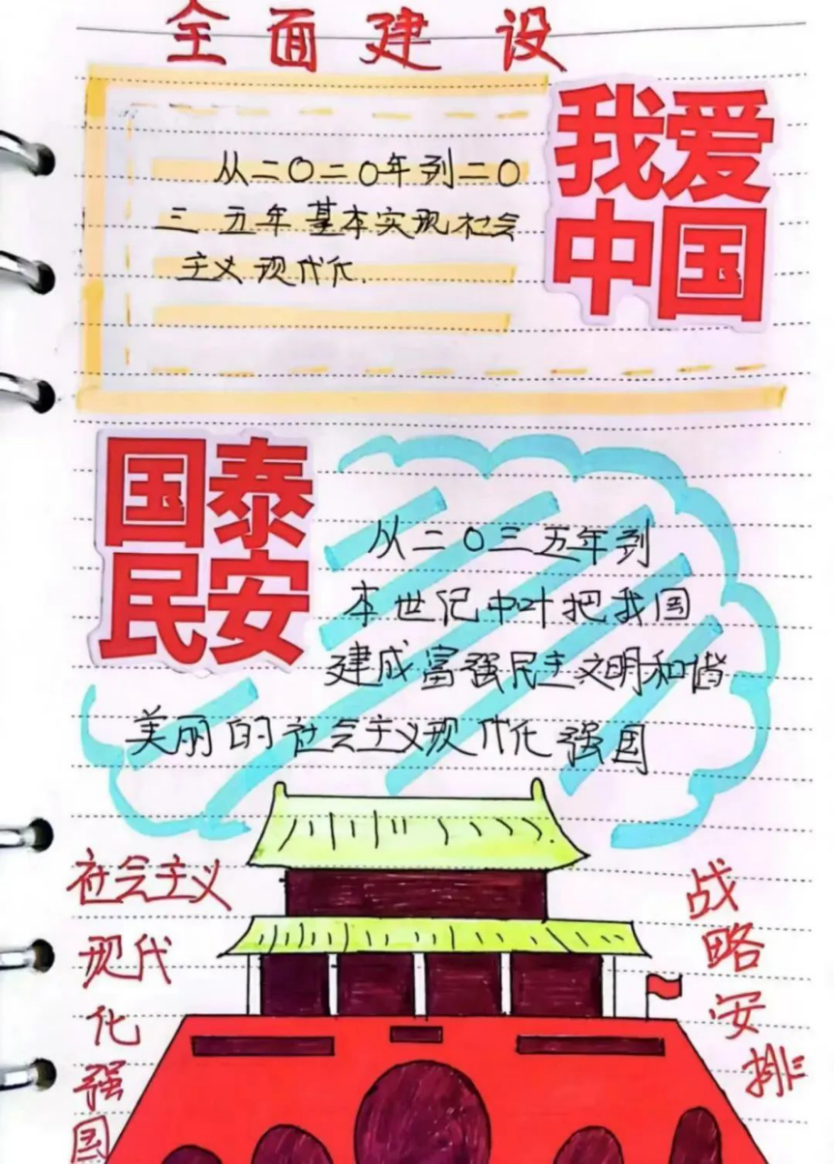 全面建设
我爱
中国
从二〇二〇年到二〇
三五年基本实现社会
主义现代化.
国泰
民安
从二〇三五年到
本世纪中叶把我国
建成富强民主文明和谐
美丽的社会主义现代化强国
社会主义
现代
化
强
国
战
略
安
排